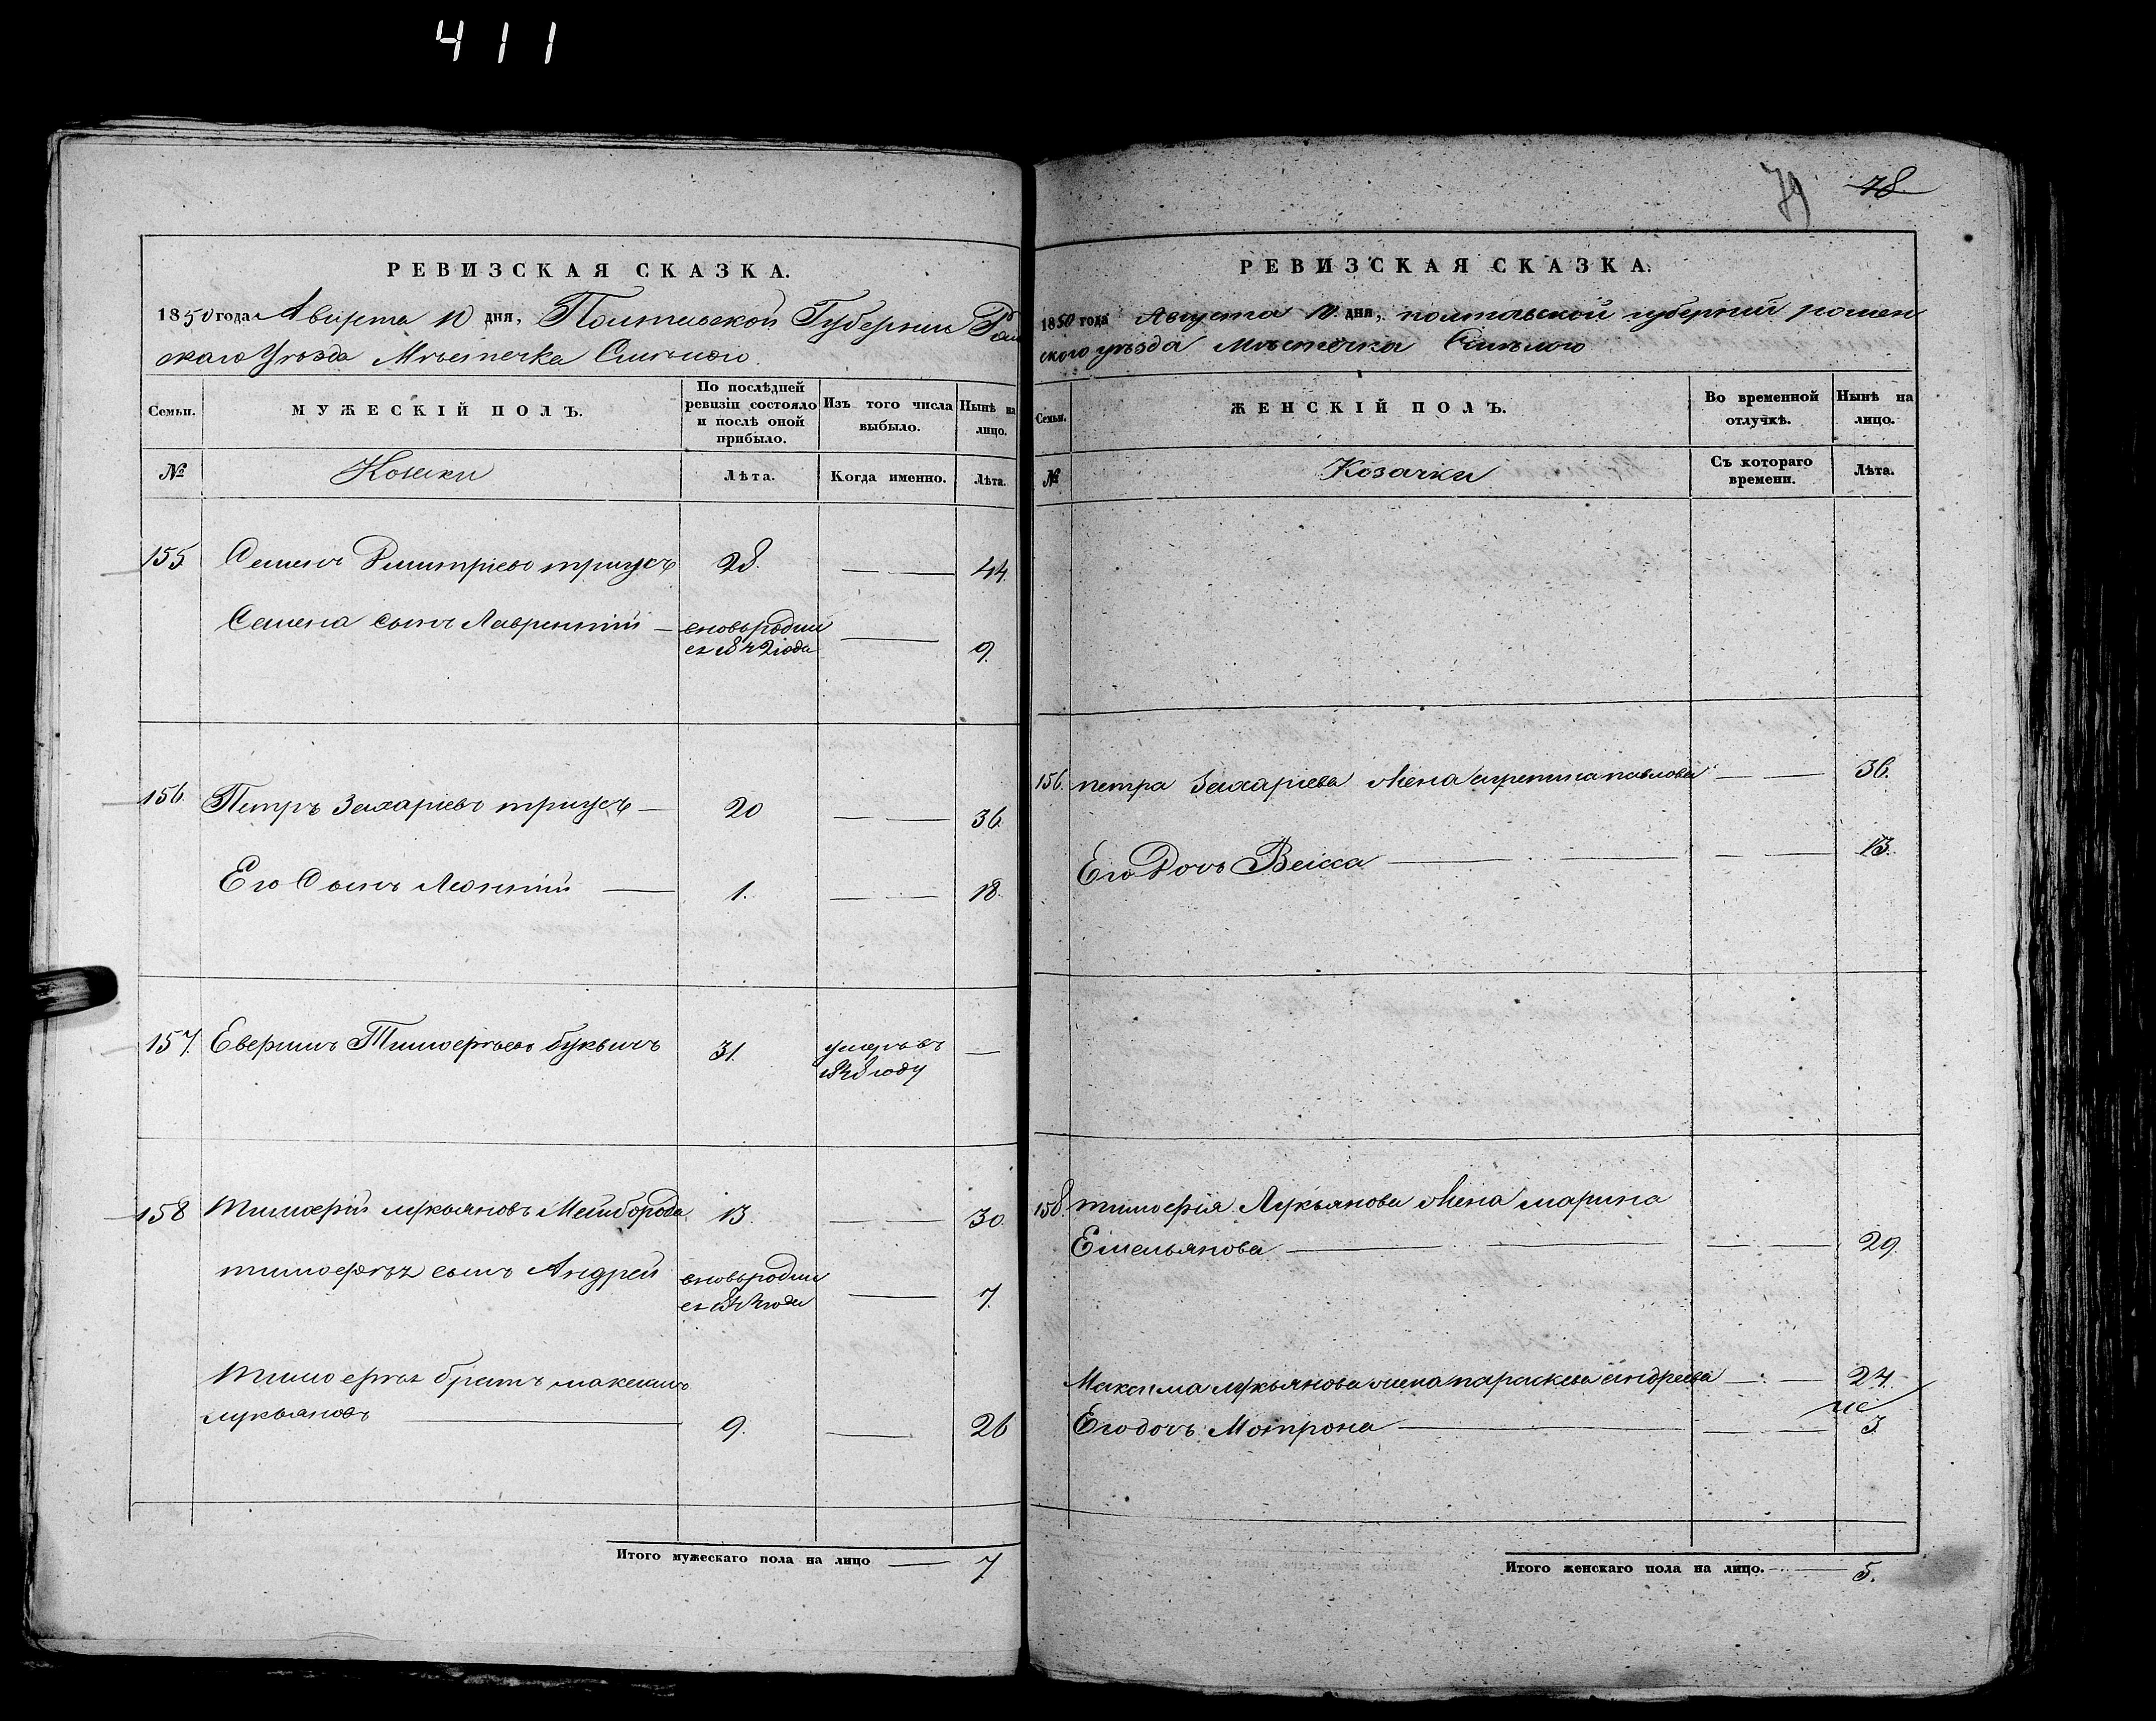 411
РЕВИЗСКАЯ СКАЗКА.
1850 года Августа 10 дня, Полтавской Губернии Ромен
скаго Уѣзда Мѣстечка Смѣлого
Семьи.
МУЖЕСКІЙ ПОЛЪ.
По послѣдней ревизіи состояло и послѣ оной прибыло.
Изъ того числа выбыло.
Нынѣ на лицо.
№
Козаки
Лѣта.
Когда именно.
Лѣта.
155 Семенъ Дмитріевъ тригусъ 28. 44
Семена сынъ Лаврентий вновьродил
ся 1842 года 9.
156. Петръ Захаріевъ тригусъ 20 36
Его Сынъ Леонтий 1. 18.
157. Тимофеевъ 31. умеръ въ
1848 году
158 Тимофей лукьяновъ Мейборода 13. 30
тимофея сынъ Андрей вновьродил
ся года 7.
Тимофея братъ максимъ
лукьяновъ 9. 26
Итого мужескаго пола на лицо 7
79 78
РЕВИЗСКАЯ СКАЗКА.
1850 года Августа 10. дня, полтавской губерний ромен
ского уѣзда Мѣстечка Смѣлого
Семьи.
ЖЕНСКІЙ ПОЛЪ.
Во временной отлучкѣ.
Нынѣ на лицо.
№
Козачки
Съ котораго времени.
Лѣта.
156. петра Захаріева жена павлова 36.
Его Дочь Васса 13.
158. тимофія Лукьянова жена марина
Емельянова 29.
Максима лукьянова жена параскева андреева 24.
Его дочь Мотрона 3
Итого женскаго пола на лицо. 5.